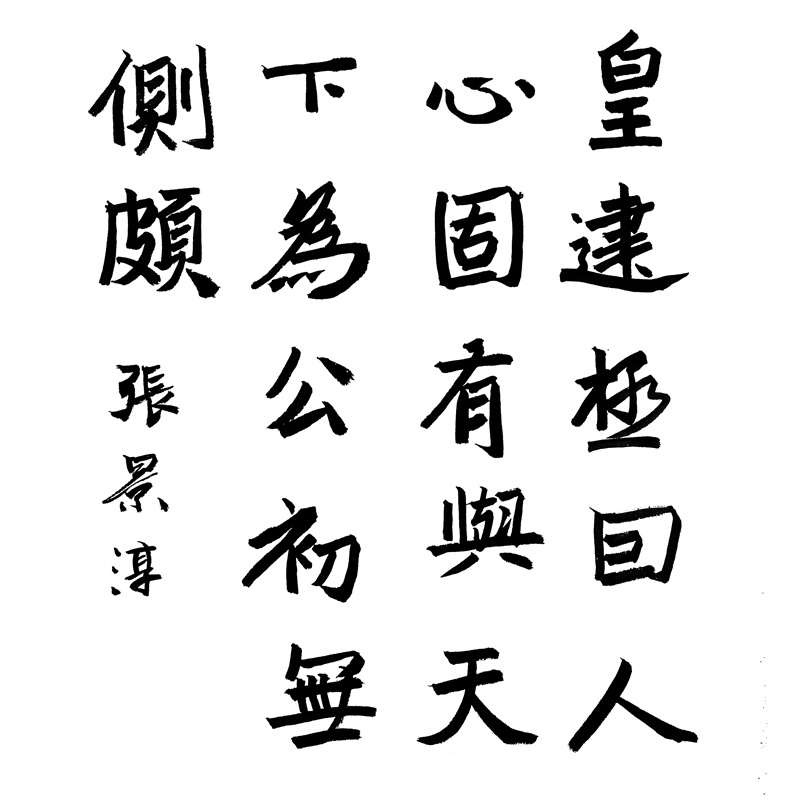 皇建極曰人
心固有與天
下為公初無
側頗
張景淳